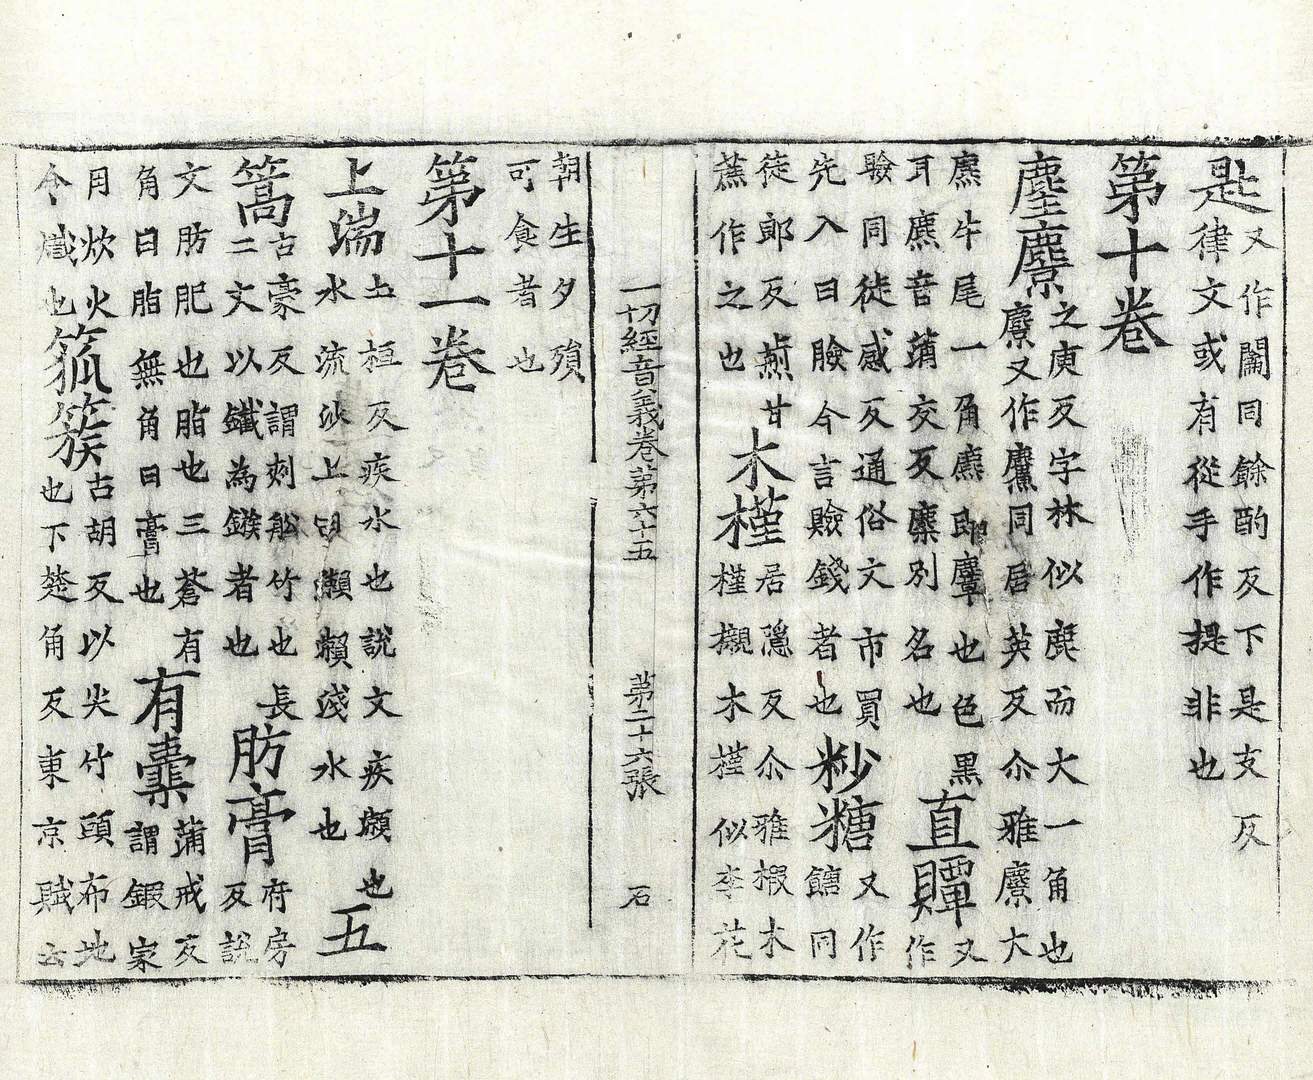 匙又作闟同餘酌反下是支反
律文或有從手作提非也
第十卷
塵麖之庾反字林似鹿而大一角也
麖又作麠同居英反尒雅麖大
麃牛尾一角麃即麞也色黑
耳麃音蒲交反麜別名也
直賺又作
驗同徒感反通俗文市買
先入曰賺今言賺錢者也
粆糖又作
䭚同
徒郎反煎甘
蔗作之也
木槿居隱反尒雅椴木
槿櫬木槿似李花
一切經音義卷第六十五
第二十六張
石
朝生夕殞
可食者也
第十一卷
上湍土桓反疾水也說文疾瀨也
水流沙上曰瀨瀨淺水也
五
篙古豪反謂刺船竹也長
二丈以鐵為鏃者也
肪膏府房
反說
文肪肥也脂也三蒼有
角曰脂無角曰膏也
有橐蒲戒反
謂鍜家
用炊火
令熾也
箛簇古胡反以尖竹頭布地
也下楚角反東京賦云